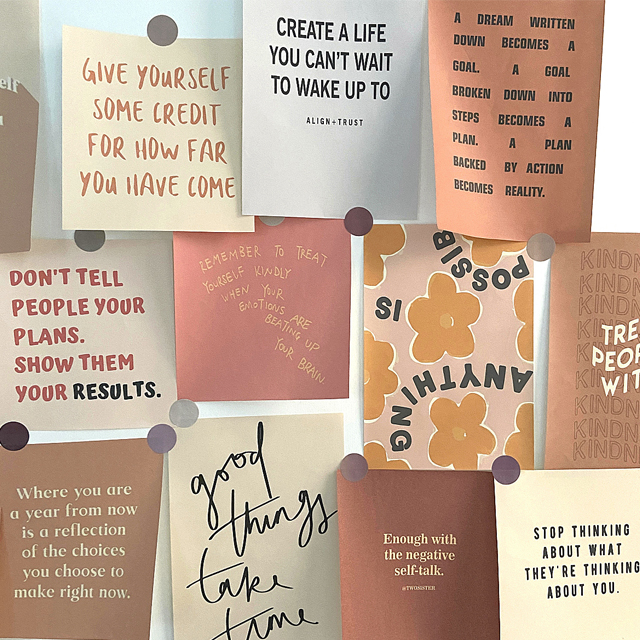 elf
GIVE YOURSELF
SOME CREDIT
FOR HOW FAR
YOU HAVE COME
CREATE A LIFE
YOU CAN'T WAIT
TO WAKE UP TO
ALIGN+TRUST
A DREAM WRITTEN
DOWN BECOMES A
GOAL. A GOAL
BROKEN DOWN INTO
STEPS BECOMES A
PLAN. A PLAN
BACKED BY ACTION
BECOMES REALITY.
DON'T TELL
PEOPLE YOUR
PLANS.
SHOW THEM
YOUR RESULTS.
REMEMBER TO TREAT
YOURSELF KINDLY
WHEN YOUR
EMOTIONS ARE
BEATING UP
YOUR BRAIN
ANYTHING
IS
POSSIB
KINDN
KINDN
KINDN
TRE
PEOP
WIT
KINDN
KINDN
KINDN
Where you are
a year from now
is a reflection
of the choices
you choose to
make right now.
good
things
take
time
Enough with
the negative
self-talk.
@TWOSISTER
STOP THINKING
ABOUT WHAT
THEY'RE THINKING
ABOUT YOU.